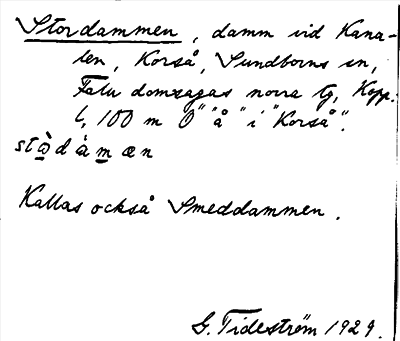 Stordammen, damm vid Kana-
len, Korså, Sundborns sn,
Falu domsagas norra tg, Kopp.
l, 100 m O "å" i "Korså".
stὼdàmæn
Kallas också Smeddammen.
G. Tideström 1929.